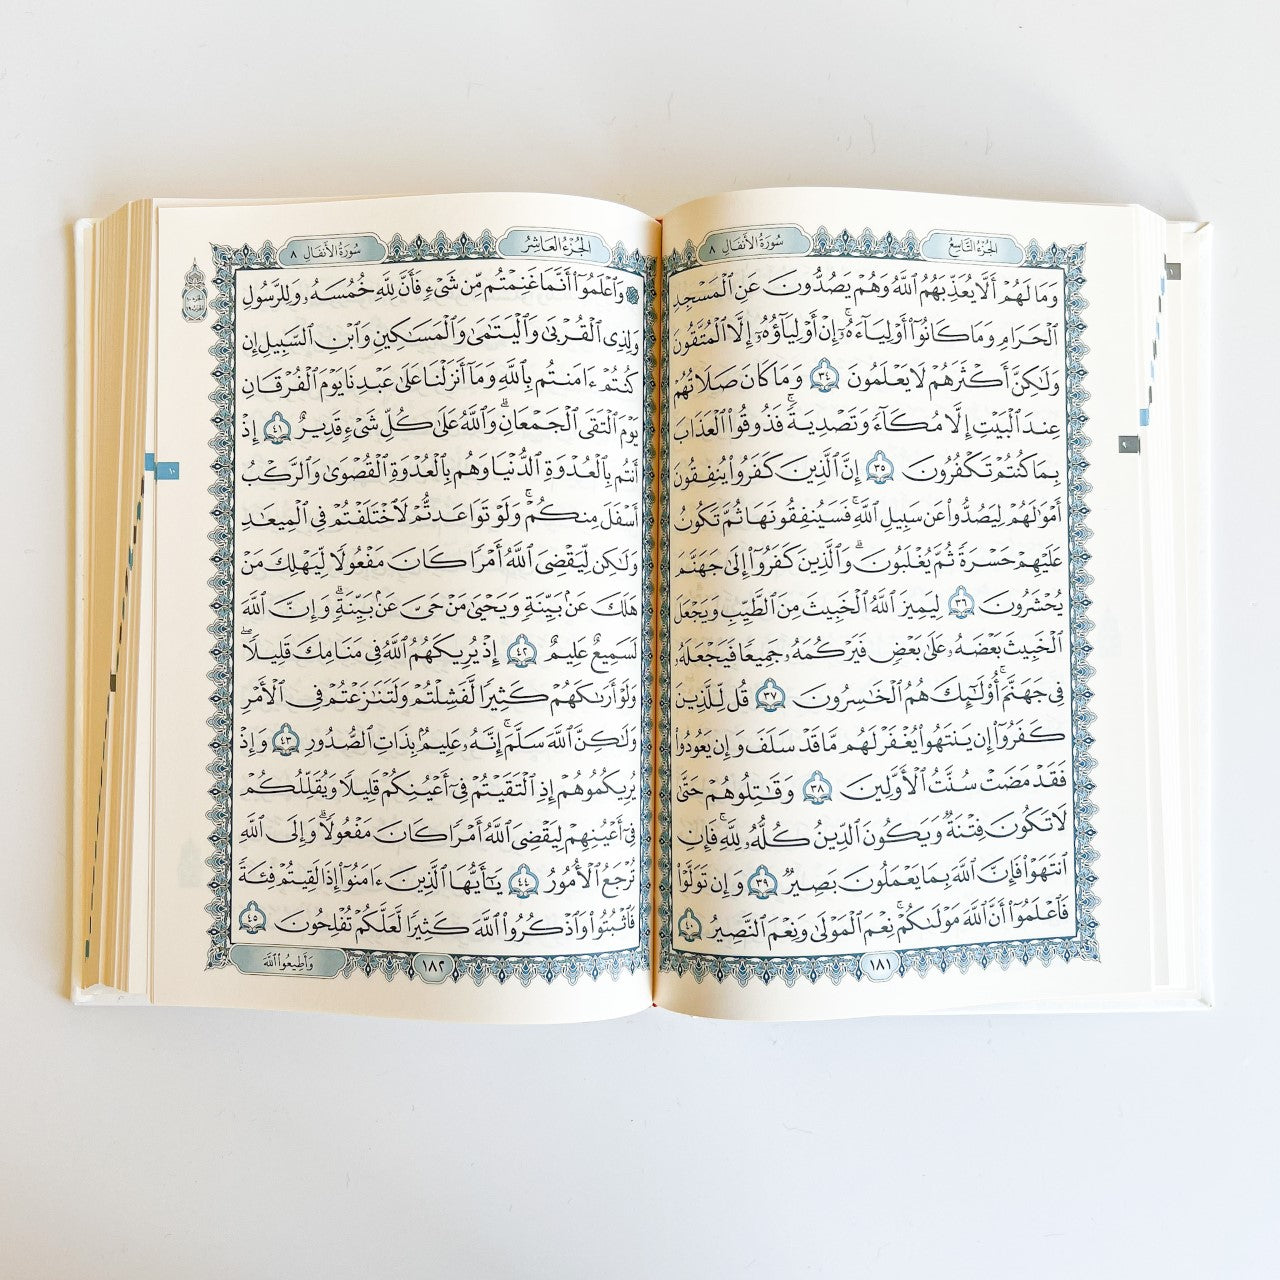 الجزء التاسع
سورة الأنفال ٨
وَمَا لَهُمْ أَلَّا يُعَذِّبَهُمُ ٱللَّهُ وَهُمْ يَصُدُّونَ عَنِ ٱلْمَسْجِدِ
ٱلْحَرَامِ وَمَا كَانُوٓا۟ أَوْلِيَآءَهُۥٓ ۚ إِنْ أَوْلِيَآؤُهُۥٓ إِلَّا ٱلْمُتَّقُونَ
وَلَٰكِنَّ أَكْثَرَهُمْ لَا يَعْلَمُونَ ٣٤ وَمَا كَانَ صَلَاتُهُمْ
عِندَ ٱلْبَيْتِ إِلَّا مُكَآءً وَتَصْدِيَةً ۚ فَذُوقُوا۟ ٱلْعَذَابَ
بِمَا كُنتُمْ تَكْفُرُونَ ٣٥ إِنَّ ٱلَّذِينَ كَفَرُوا۟ يُنفِقُونَ
أَمْوَٰلَهُمْ لِيَصُدُّوا۟ عَن سَبِيلِ ٱللَّهِ ۚ فَسَيُنفِقُونَهَا ثُمَّ تَكُونُ
عَلَيْهِمْ حَسْرَةً ثُمَّ يُغْلَبُونَ ۗ وَٱلَّذِينَ كَفَرُوٓا۟ إِلَىٰ جَهَنَّمَ
يُحْشَرُونَ ٣٦ لِيَمِيزَ ٱللَّهُ ٱلْخَبِيثَ مِنَ ٱلطَّيِّبِ وَيَجْعَلَ
ٱلْخَبِيثَ بَعْضَهُۥ عَلَىٰ بَعْضٍ فَيَرْكُمَهُۥ جَمِيعًا فَيَجْعَلَهُۥ
فِى جَهَنَّمَ ۚ أُو۟لَٰٓئِكَ هُمُ ٱلْخَٰسِرُونَ ٣٧ قُل لِّلَّذِينَ
كَفَرُوٓا۟ إِن يَنتَهُوا۟ يُغْفَرْ لَهُم مَّا قَدْ سَلَفَ وَإِن يَعُودُوا۟
فَقَدْ مَضَتْ سُنَّتُ ٱلْأَوَّلِينَ ٣٨ وَقَٰتِلُوهُمْ حَتَّىٰ
لَا تَكُونَ فِتْنَةٌ وَيَكُونَ ٱلدِّينُ كُلُّهُۥ لِلَّهِ ۚ فَإِنِ
ٱنتَهَوْا۟ فَإِنَّ ٱللَّهَ بِمَا يَعْمَلُونَ بَصِيرٌ ٣٩ وَإِن تَوَلَّوْا۟
فَٱعْلَمُوٓا۟ أَنَّ ٱللَّهَ مَوْلَىٰكُمْ ۚ نِعْمَ ٱلْمَوْلَىٰ وَنِعْمَ ٱلنَّصِيرُ ٤٠
١٨١
٩
الجزء العاشر
سورة الأنفال ٨
وَٱعْلَمُوٓا۟ أَنَّمَا غَنِمْتُم مِّن شَىْءٍ فَأَنَّ لِلَّهِ خُمُسَهُۥ وَلِلرَّسُولِ
وَلِذِى ٱلْقُرْبَىٰ وَٱلْيَتَٰمَىٰ وَٱلْمَسَٰكِينِ وَٱبْنِ ٱلسَّبِيلِ إِن
كُنتُمْ ءَامَنتُم بِٱللَّهِ وَمَآ أَنزَلْنَا عَلَىٰ عَبْدِنَا يَوْمَ ٱلْفُرْقَانِ
يَوْمَ ٱلْتَقَى ٱلْجَمْعَانِ ۗ وَٱللَّهُ عَلَىٰ كُلِّ شَىْءٍ قَدِيرٌ ٤١ إِذْ
أَنتُم بِٱلْعُدْوَةِ ٱلدُّنْيَا وَهُم بِٱلْعُدْوَةِ ٱلْقُصْوَىٰ وَٱلرَّكْبُ
أَسْفَلَ مِنكُمْ ۚ وَلَوْ تَوَاعَدتُّمْ لَٱخْتَلَفْتُمْ فِى ٱلْمِيعَٰدِ
وَلَٰكِن لِّيَقْضِىَ ٱللَّهُ أَمْرًا كَانَ مَفْعُولًا لِّيَهْلِكَ مَنْ
هَلَكَ عَنۢ بَيِّنَةٍ وَيَحْيَىٰ مَنْ حَىَّ عَنۢ بَيِّنَةٍ ۗ وَإِنَّ ٱللَّهَ
لَسَمِيعٌ عَلِيمٌ ٤٢ إِذْ يُرِيكَهُمُ ٱللَّهُ فِى مَنَامِكَ قَلِيلًا ۖ
وَلَوْ أَرَىٰكَهُمْ كَثِيرًا لَّفَشِلْتُمْ وَلَتَنَٰزَعْتُمْ فِى ٱلْأَمْرِ
وَلَٰكِنَّ ٱللَّهَ سَلَّمَ ۗ إِنَّهُۥ عَلِيمٌۢ بِذَاتِ ٱلصُّدُورِ ٤٣ وَإِذْ
يُرِيكُمُوهُمْ إِذِ ٱلْتَقَيْتُمْ فِىٓ أَعْيُنِكُمْ قَلِيلًا وَيُقَلِّلُكُمْ
فِىٓ أَعْيُنِهِمْ لِيَقْضِىَ ٱللَّهُ أَمْرًا كَانَ مَفْعُولًا ۗ وَإِلَى ٱللَّهِ
تُرْجَعُ ٱلْأُمُورُ ٤٤ يَٰٓأَيُّهَا ٱلَّذِينَ ءَامَنُوٓا۟ إِذَا لَقِيتُمْ فِئَةً
فَٱثْبُتُوا۟ وَٱذْكُرُوا۟ ٱللَّهَ كَثِيرًا لَّعَلَّكُمْ تُفْلِحُونَ ٤٥
١٨٢
وأطيعوا الله
١٠